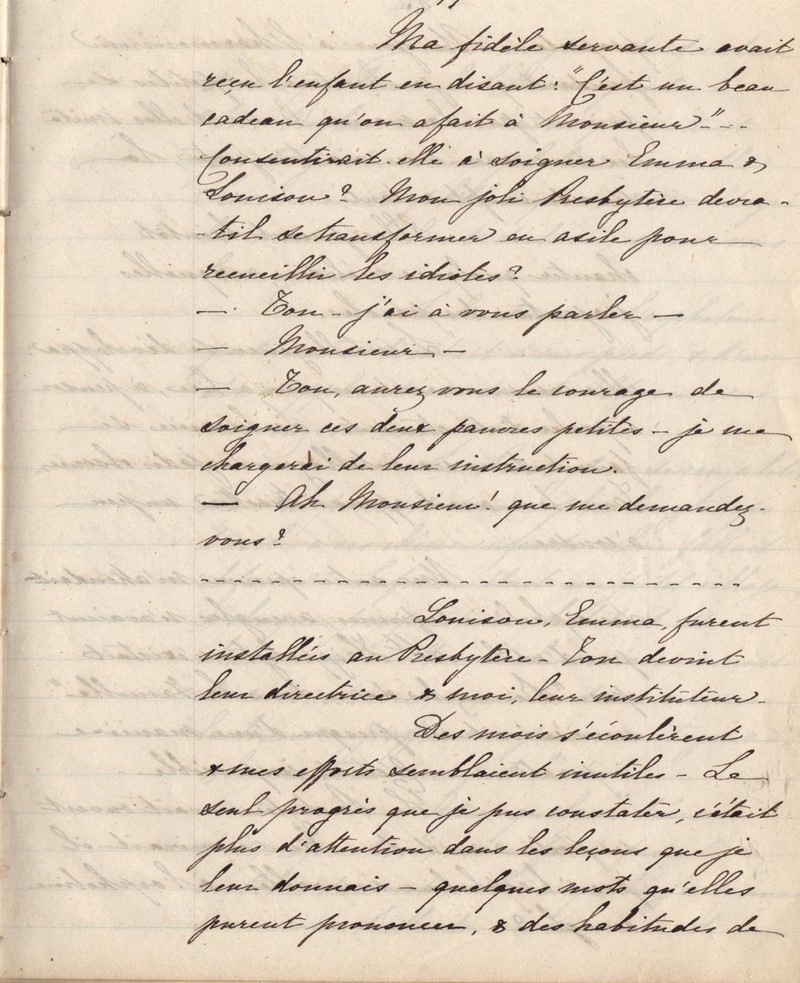 Ma fidèle servante avait
reçu l'enfant en disant : "C'est un beau
cadeau qu'on a fait à Monsieur" - -
Consentirait-elle à soigner Emma &
Louison ? Mon joli Presbytère devra-
-t-il se transformer en asile pour
recueillir les idiotes ?
— Ton - j'ai à vous parler —
— Monsieur —
— Ton, aurez vous le courage de
soigner ces deux pauvres petites - je me
chargerai de leur instruction.
— Ah Monsieur ! que me demandez-
vous ?
Louison, Emma, furent
installées au Presbytère - Ton devint
leur directrice & moi, leur instituteur -
Des mois s'écoulèrent
& mes efforts semblaient inutiles - Le
seul progrès que je pus constater, c'était
plus d'attention dans les leçons que je
leur donnais — quelques mots qu'elles
purent prononcer, & des habitudes de